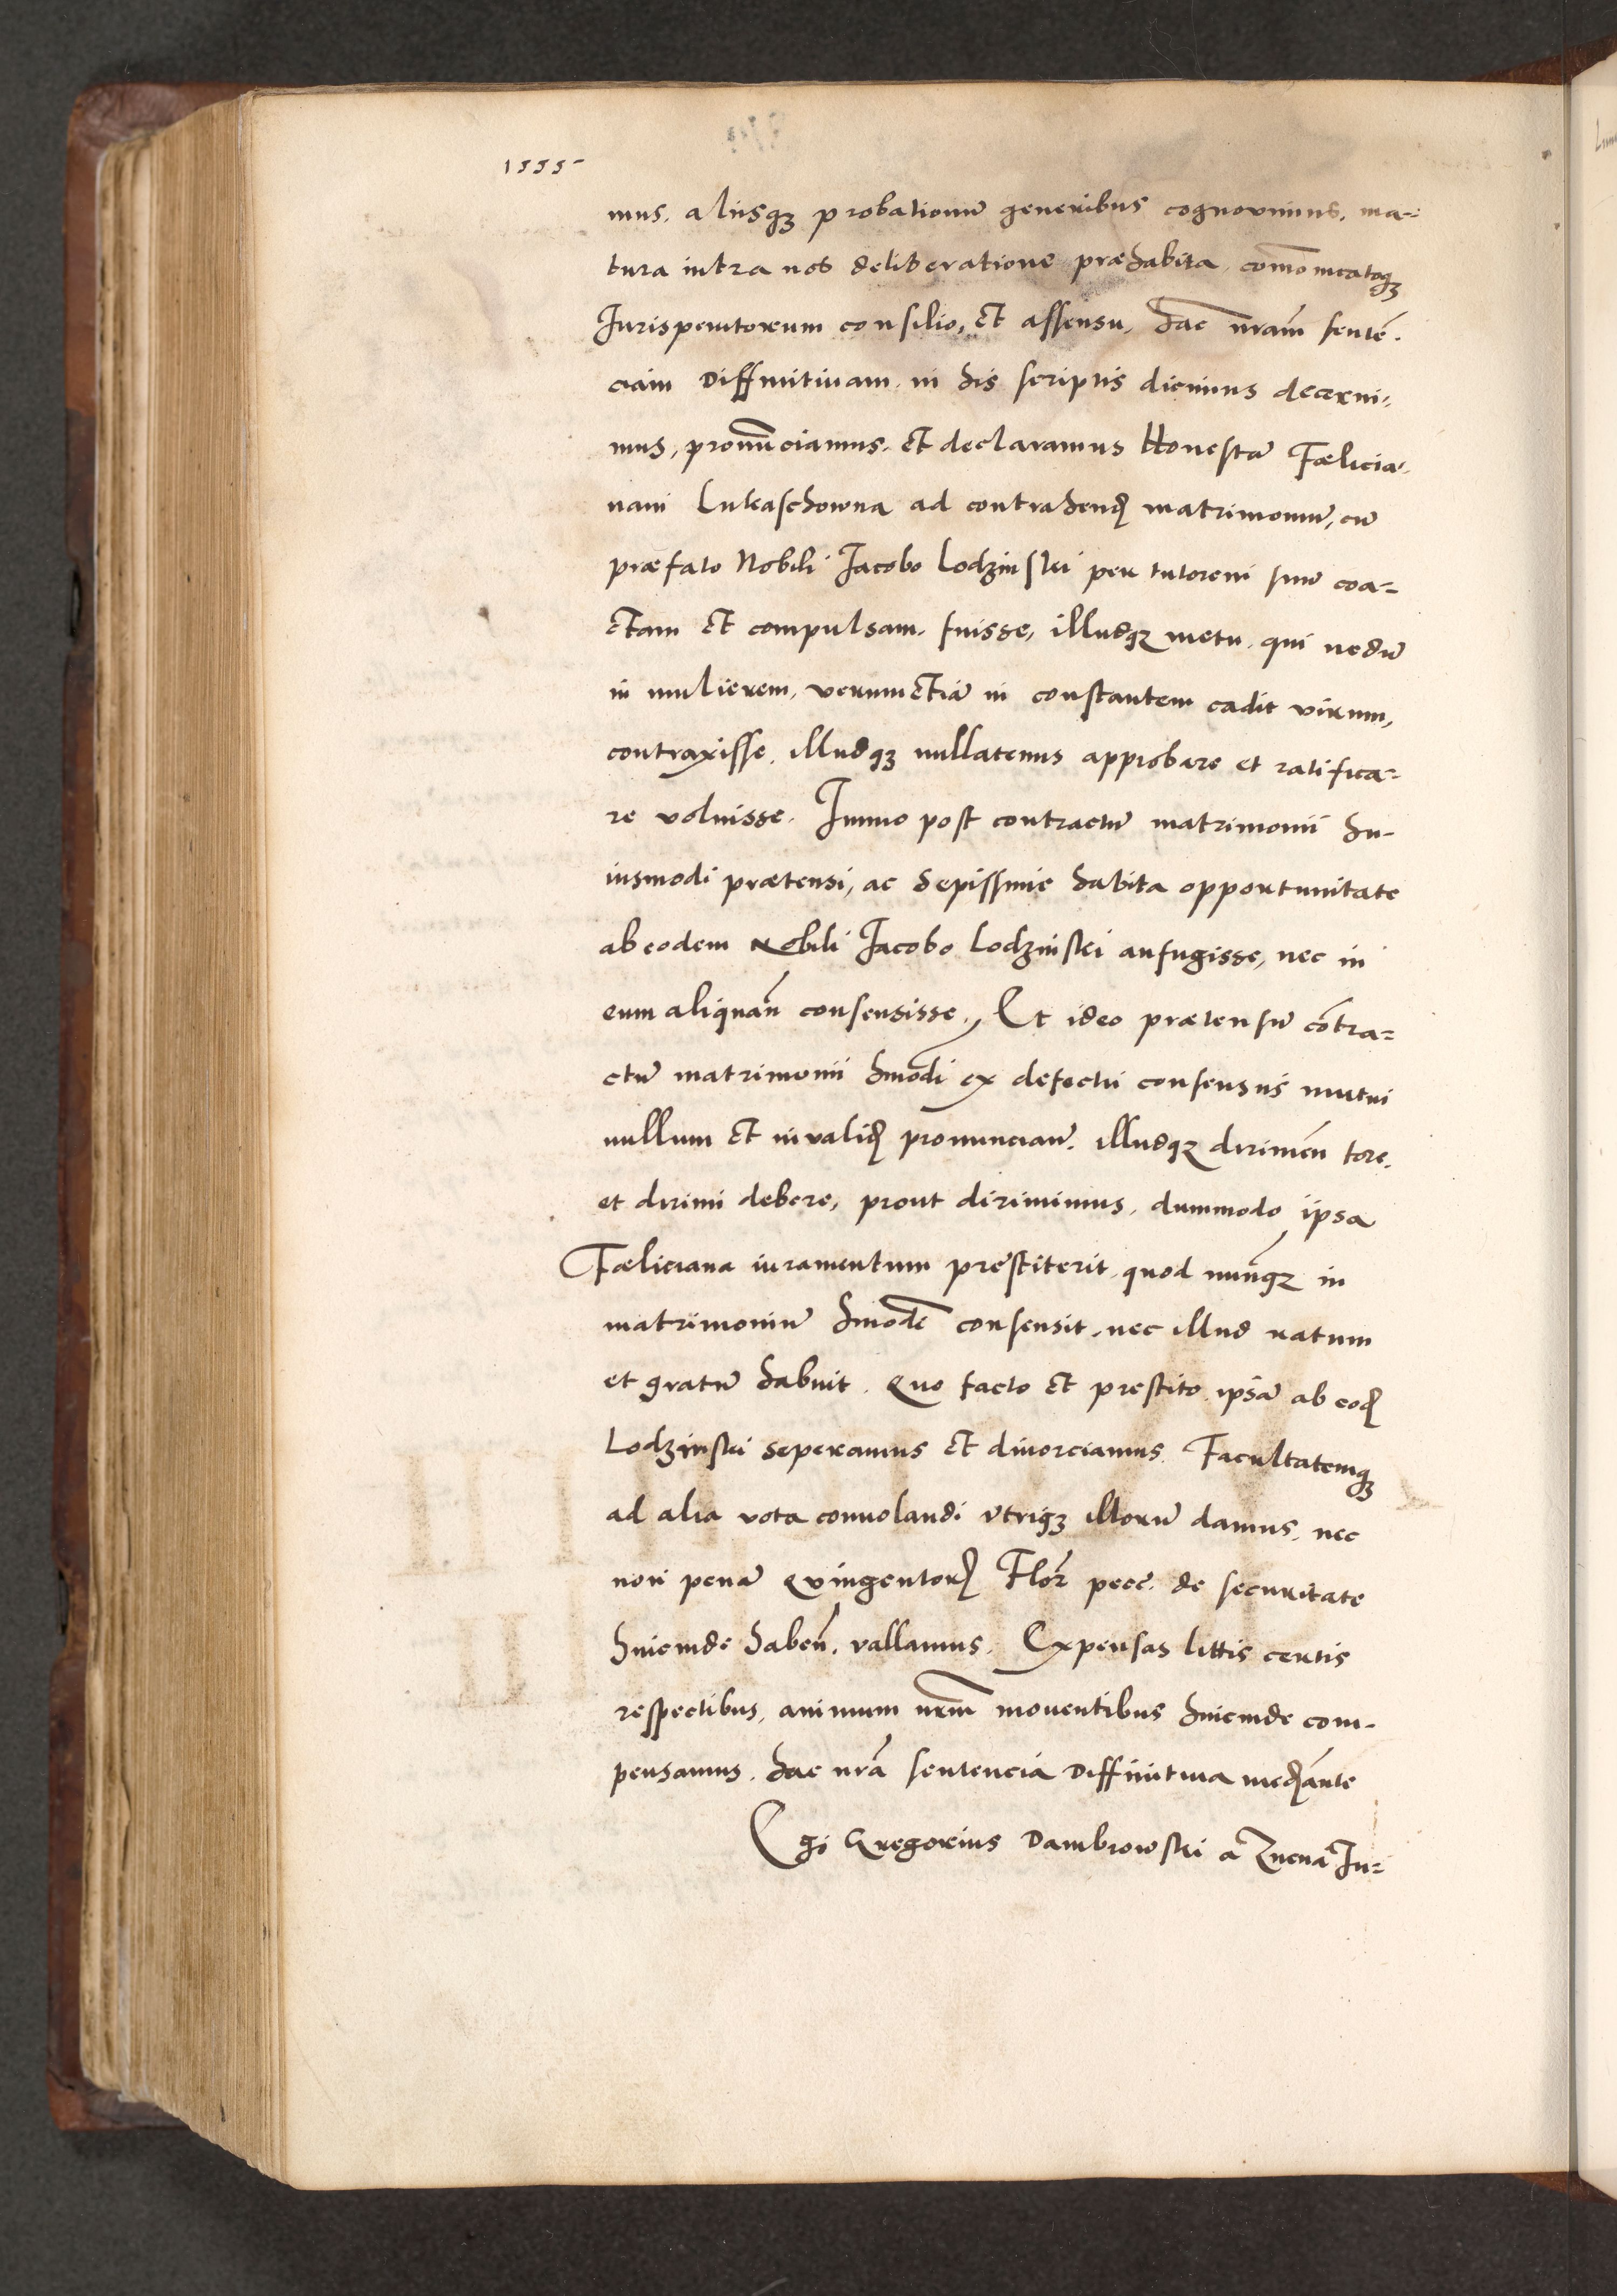 1555
mus, aliisqz probationũ generibus cognovimus, ma=
tura intra nos deliberatione præhabita, com̃onicatoqz
Iurisperitorum consilio, et assensu, hac nr̃am senteñ.
ciam Diffinitivam, in his scriptis dicimus decerni,
mus, pronũciamus, et declaramus Honestã Fælicia,
nam Lukaschowna ad contrahend̃ matrimoniũ, cũ
præfato Nobili Iacobo Lodzinski per tutorem suũ coa=
ctam et compulsam, fuisse, illudqz metu, qui nedũ
in mulierem, verumetiã in constantem cadit virum,
contraxisse, illudqz nullatenus approbare et ratifica=
re voluisse. Immo post contractũ matrimonii hu-
iusmodi prætensi, ac sepissime habita opportunitate
ab eodem Nobili Iacobo Lodzinski aufugisse, nec in
eum aliquañ consensisse, Et ideo prætensũ cõtra=
ctũ matrimonii hmõdi ex defectu consensus mutui
nullum et invalid̃ pronunciam̃. illudqz dirimeñ fore,
et dirimi debere, prout dirimimus, dummodo ipsa
Fæliciana iuramentum prestiterit, quod nunqz in
matrimoniũ hmõdi consensit, nec illud ratum
et gratũ habuit. Quo facto et prestito ipsã ab eod̃
Lodzinski seperamus et divorciamus, Facultatemqz
ad alia vota convolandi vtriqz illorũ damus, nec
non penã Quingentor̃ Flor̃ pecc̃. de securitate
hincinde habeñ. vallamus, Expensas littis certis
respectibus, animum nrm̃ moventibus hincinde com-
pensamus, hac nrã sentencia Diffinitiva mediãnte
Ego Gregorius Dambrowski a Znenã Iu=